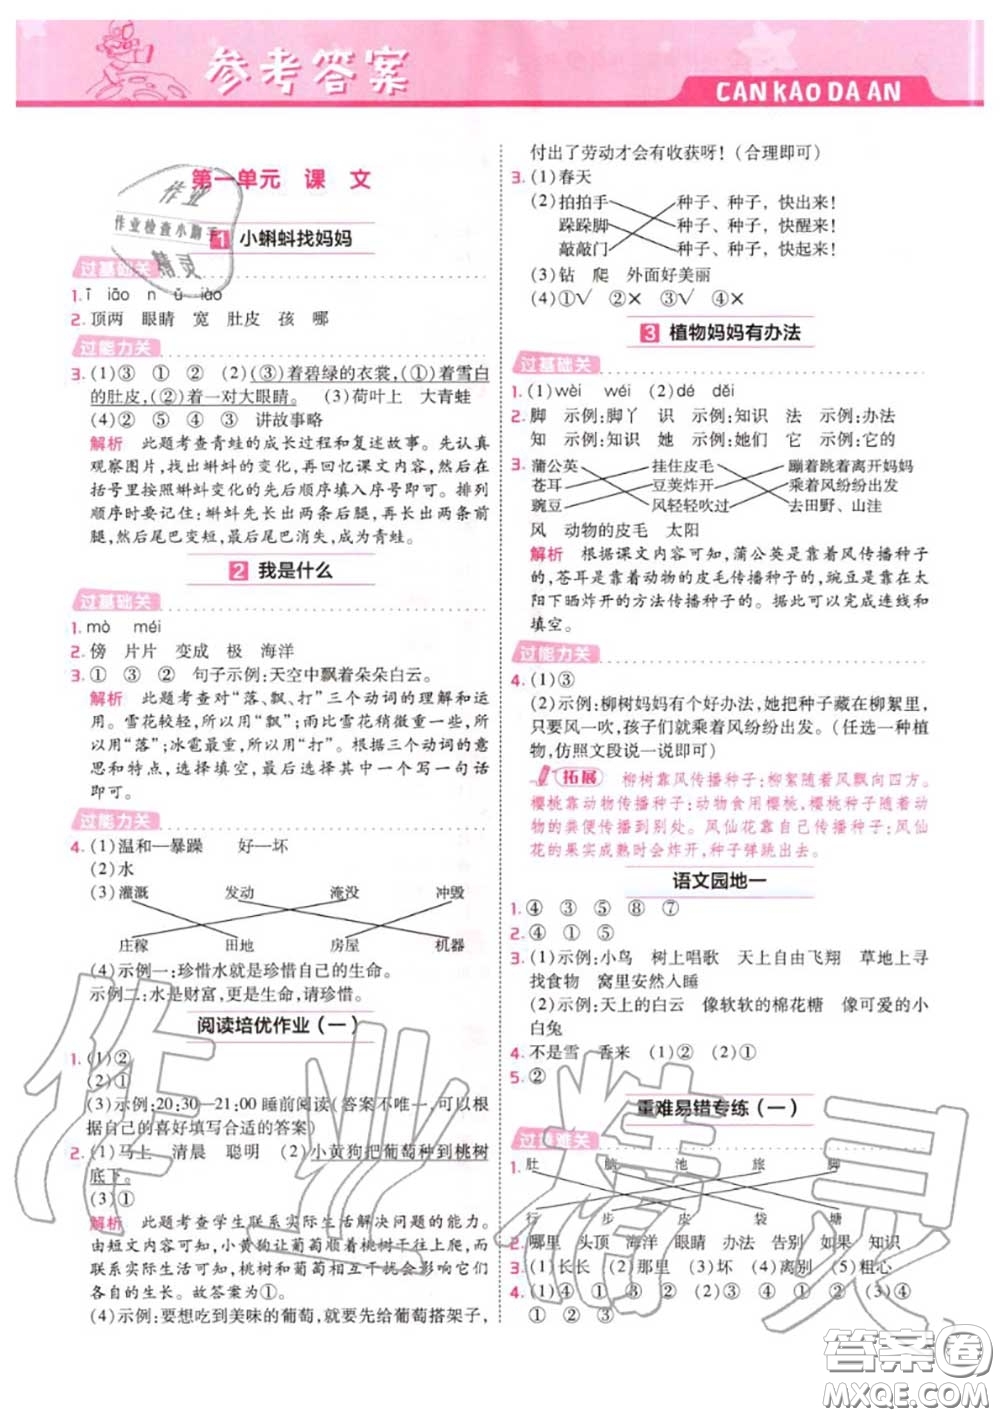 参考答案
CAN KAO DA AN
第一单元 课 文
作业
作业检查小助手
精灵
1 小蝌蚪找妈妈
过基础关
1. ī iāo n ǔ iào
2. 顶两 眼睛 宽 肚皮 孩 哪
过能力关
3. (1)③ ① ② (2)(③)着碧绿的衣裳,(①)着雪白
的肚皮,(②)着一对大眼睛。 (3)荷叶上 大青蛙
(4)② ⑤ ④ ③ 讲故事略
解析 此题考查青蛙的成长过程和复述故事。先认真
观察图片,找出蝌蚪的变化,再回忆课文内容,然后在
括号里按照蝌蚪变化的先后顺序填入序号即可。排列
顺序时要记住:蝌蚪先长出两条后腿,再长出两条前
腿,然后尾巴变短,最后尾巴消失,成为青蛙。
2 我是什么
过基础关
1. mò méi
2. 傍 片片 变成 极 海洋
3. ① ③ ② 句子示例:天空中飘着朵朵白云。
解析 此题考查对“落、飘、打”三个动词的理解和运
用。雪花较轻,所以用“飘”;雨比雪花稍微重一些,所
以用“落”;冰雹最重,所以用“打”。根据三个动词的意
思和特点,选择填空,最后选择其中一个写一句话
即可。
过能力关
4. (1)温和—暴躁 好—坏
(2)水
(3)灌溉 发动 淹没 冲毁
庄稼 田地 房屋 机器
(4)示例一:珍惜水就是珍惜自己的生命。
示例二:水是财富,更是生命,请珍惜。
阅读培优作业(一)
1. (1)②
(2)①
(3)示例:20:30—21:00 睡前阅读(答案不唯一,可以根
据自己的喜好填写合适的答案)
2. (1)马上 清晨 聪明 (2)小黄狗把葡萄种到桃树
底下。
(3)①
解析 此题考查学生联系实际生活解决问题的能力。
由短文内容可知,小黄狗让葡萄顺着桃树往上爬,而
联系实际生活可知,桃树和葡萄相互干扰会影响它们
各自的生长。故答案为①。
(4)示例:要想吃到美味的葡萄,就要先给葡萄搭架子,
付出了劳动才会有收获呀!(合理即可)
3. (1)春天
(2)拍拍手 种子、种子,快出来!
跺跺脚 种子、种子,快醒来!
敲敲门 种子、种子,快起来!
(3)钻 爬 外面好美丽
(4)①√ ②× ③√ ④×
3 植物妈妈有办法
过基础关
1. (1)wèi wéi (2)dé děi
2. 脚 示例:脚丫 识 示例:知识 法 示例:办法
知 示例:知识 她 示例:她们 它 示例:它的
3. 蒲公英 挂住皮毛 蹦着跳着离开妈妈
苍耳 豆荚炸开 乘着风纷纷出发
豌豆 风轻轻吹过 去田野、山洼
风 动物的皮毛 太阳
解析 根据课文内容可知,蒲公英是靠着风传播种子
的,苍耳是靠着动物的皮毛传播种子的,豌豆是靠在太
阳下晒炸开的方法传播种子的。据此可以完成连线和
填空。
过能力关
4. (1)③
(2)示例:柳树妈妈有个好办法,她把种子藏在柳絮里,
只要风一吹,孩子们就乘着风纷纷出发。(任选一种植
物,仿照文段说一说即可)
拓展 柳树靠风传播种子:柳絮随着风飘向四方。
樱桃靠动物传播种子:动物食用樱桃,樱桃种子随着动
物的粪便传播到别处。凤仙花靠自己传播种子:凤仙
花的果实成熟时会炸开,种子弹跳出去。
语文园地一
1. ④ ③ ⑤ ⑧ ⑦
2. ④ ① ⑤
3. (1)示例:小鸟 树上唱歌 天上自由飞翔 草地上寻
找食物 窝里安然入睡
(2)示例:天上的白云 像软软的棉花糖 像可爱的小
白兔
4. 不是雪 香来 (1)② (2)①
5. ②
重难易错专练(一)
过重难关
1. 肚 脑 池 旅 脚
行 步 皮 袋 塘
2. 哪里 头顶 海洋 眼睛 办法 告别 如果 知识
3. (1)长长 (2)那里 (3)坏 (4)离别 (5)粗心
4. (1)④ ① ③ ② (2)③ ① ④ ② (3)④
① ② ③
作业精灵
答案圈
MXQE.COM